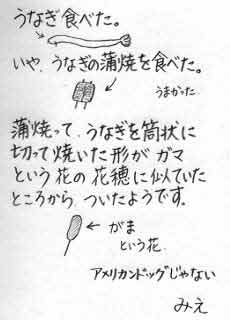 うなぎ食べた。
いや、うなぎの蒲焼を食べた。
うまかった
蒲焼って、うなぎを筒状に
切って焼いた形が ガマ
という花の 花穂に似ていた
ところから、ついたようです。
← がま
という花。
アメリカンドッグじゃない
みえ